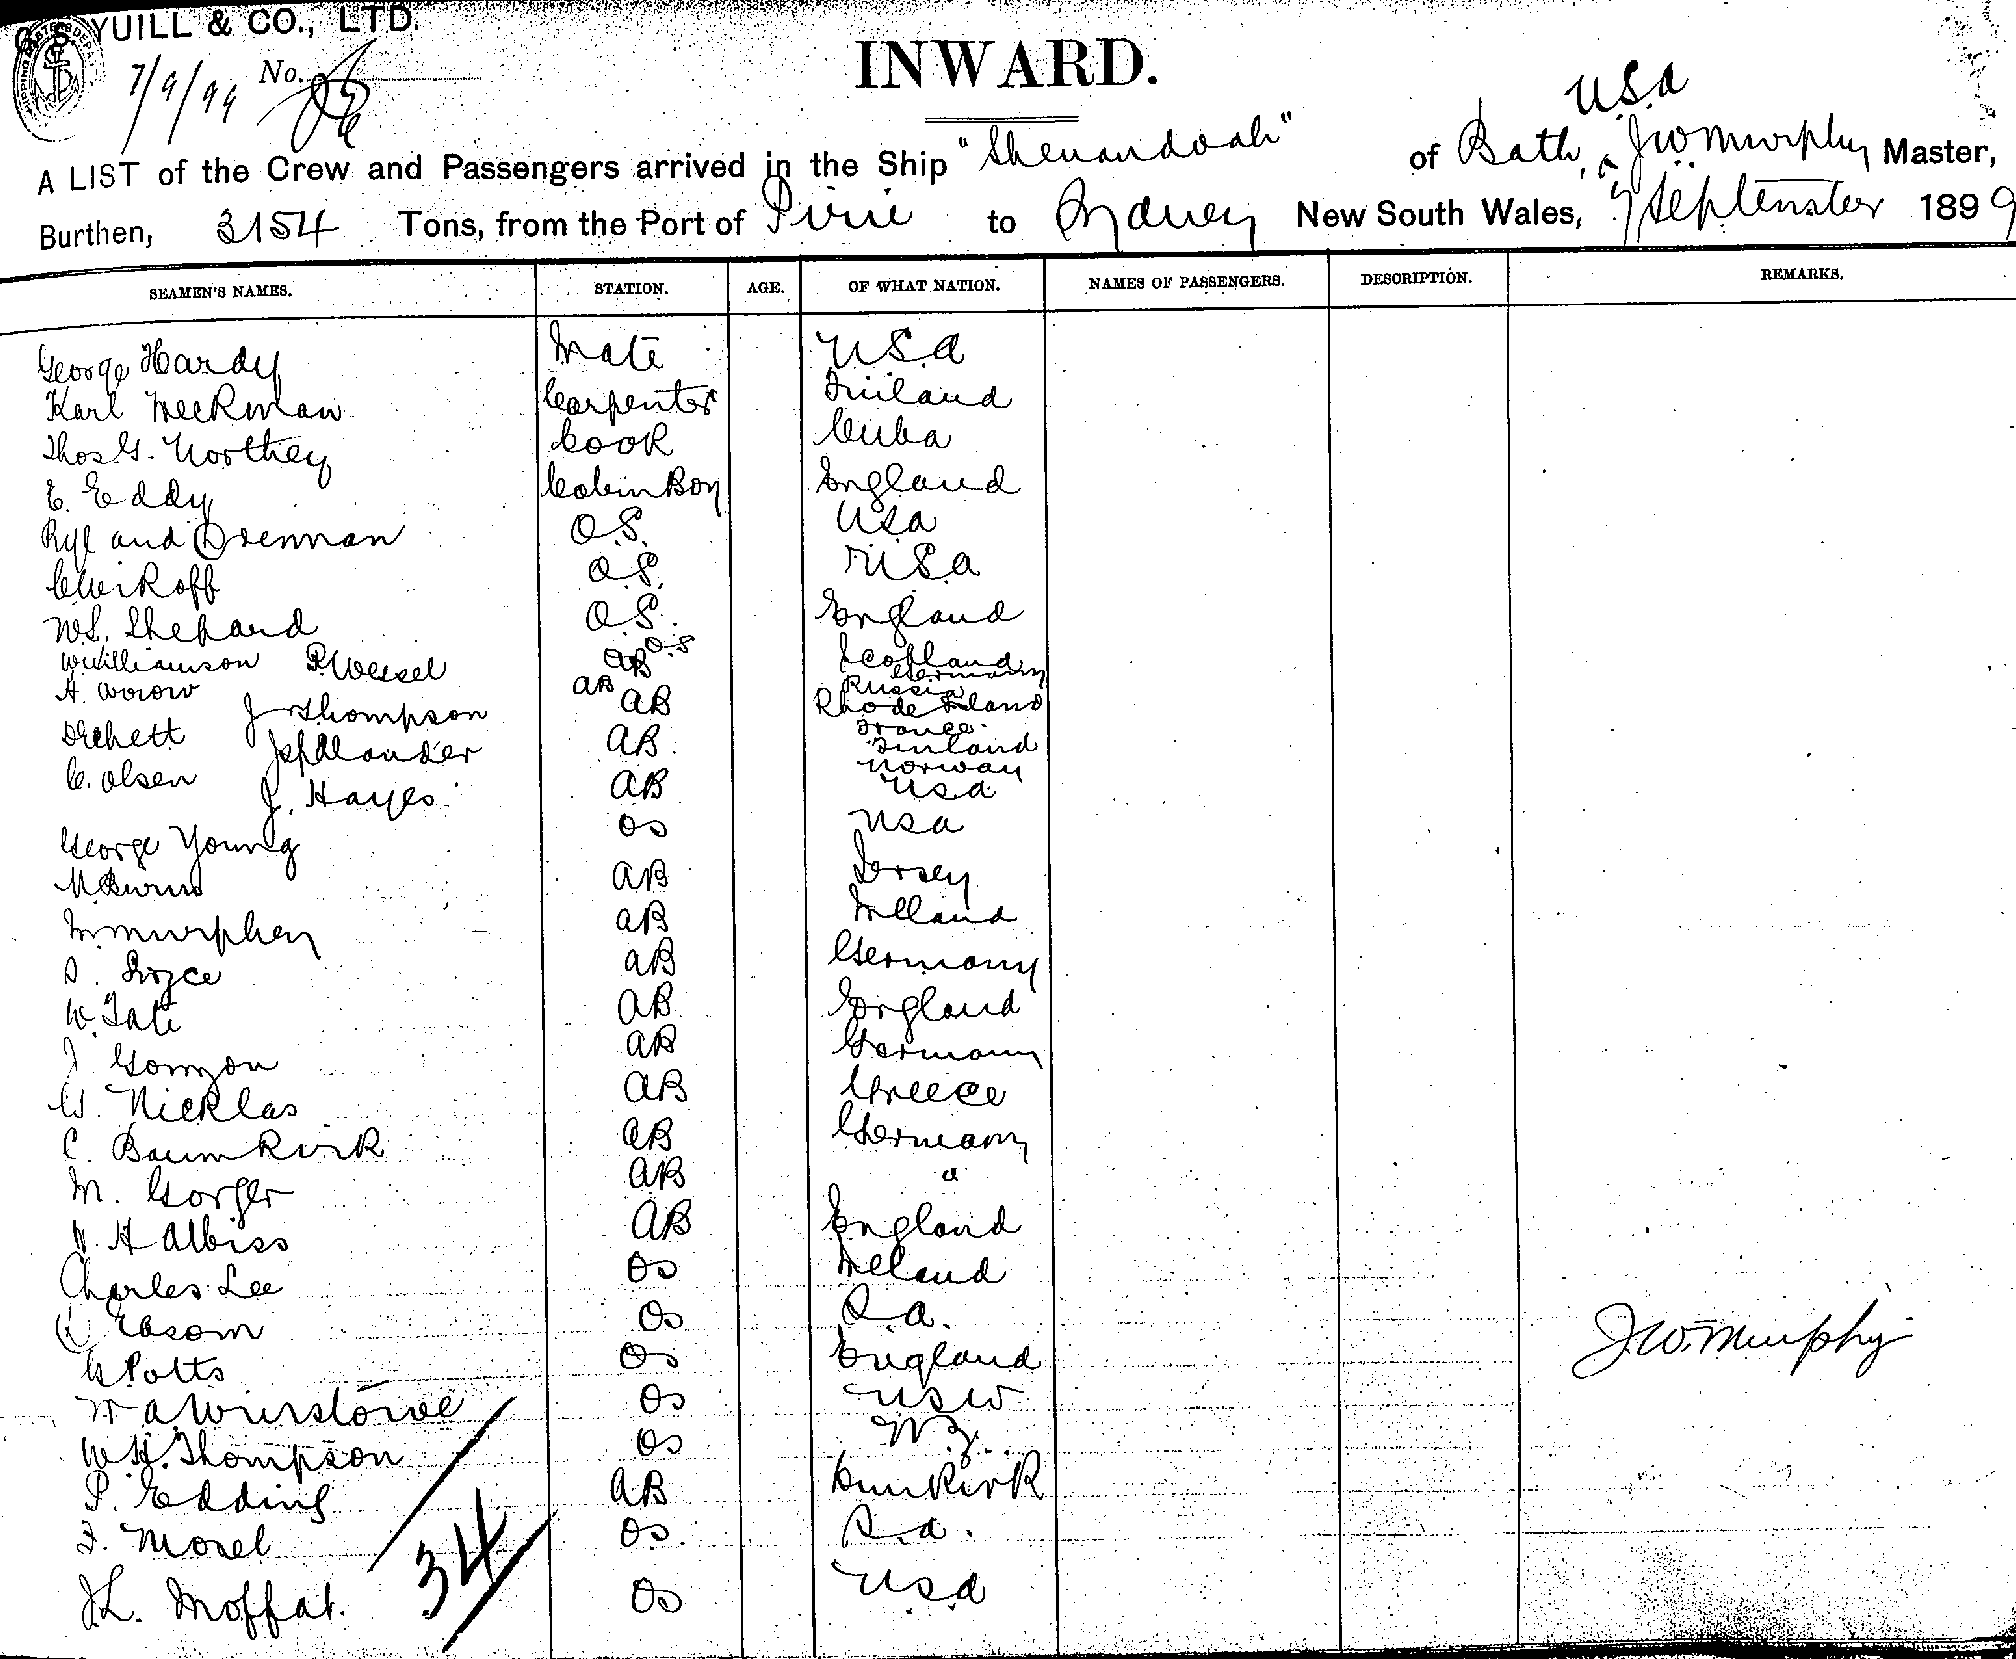 G. S. YUILL & CO., LTD.
7/9/99 No.
INWARD.
USA
A LIST of the Crew and Passengers arrived in the Ship "Shenandoah" of Bath, JW Murphy Master,
Burthen, 3154 Tons, from the Port of Pirie to Sydney New South Wales, 7 September 1899
SEAMEN'S NAMES. STATION. AGE. OF WHAT NATION. NAMES OF PASSENGERS. DESCRIPTION. REMARKS.
George Hardy Mate USA
Karl Weckman Carpenter Finland
Thos G. Northey Cook Cuba
E. Eddy Cabin Boy England
Ryland Drennan O.S. USA
O.S. USA
W.S. Shepard O.S. England
W Williamson P. Weisel AB O.S Scotland Germany
A. AB AB Russia Rhode Island
J Thompson
AB France Finland
C. Olsen J. Hayes AB Norway USA
George Young OS USA
AB Jersey
M Murphey AB Ireland
D. AB Germany
W. Tate AB England
J AB Germany
G. Nicklas AB Greece
C. Baumkirk AB Germany
M. Gorger AB "
H Albiss AB England
Charles Lee OS Ireland
Ebsom OS S.A.
G Potts OS England
OS NSW
W.H. Thompson OS NZ
P. Edding AB Dunkirk
F. Morel OS S.A.
JL. Moffat. OS USA
34
J.W. Murphy